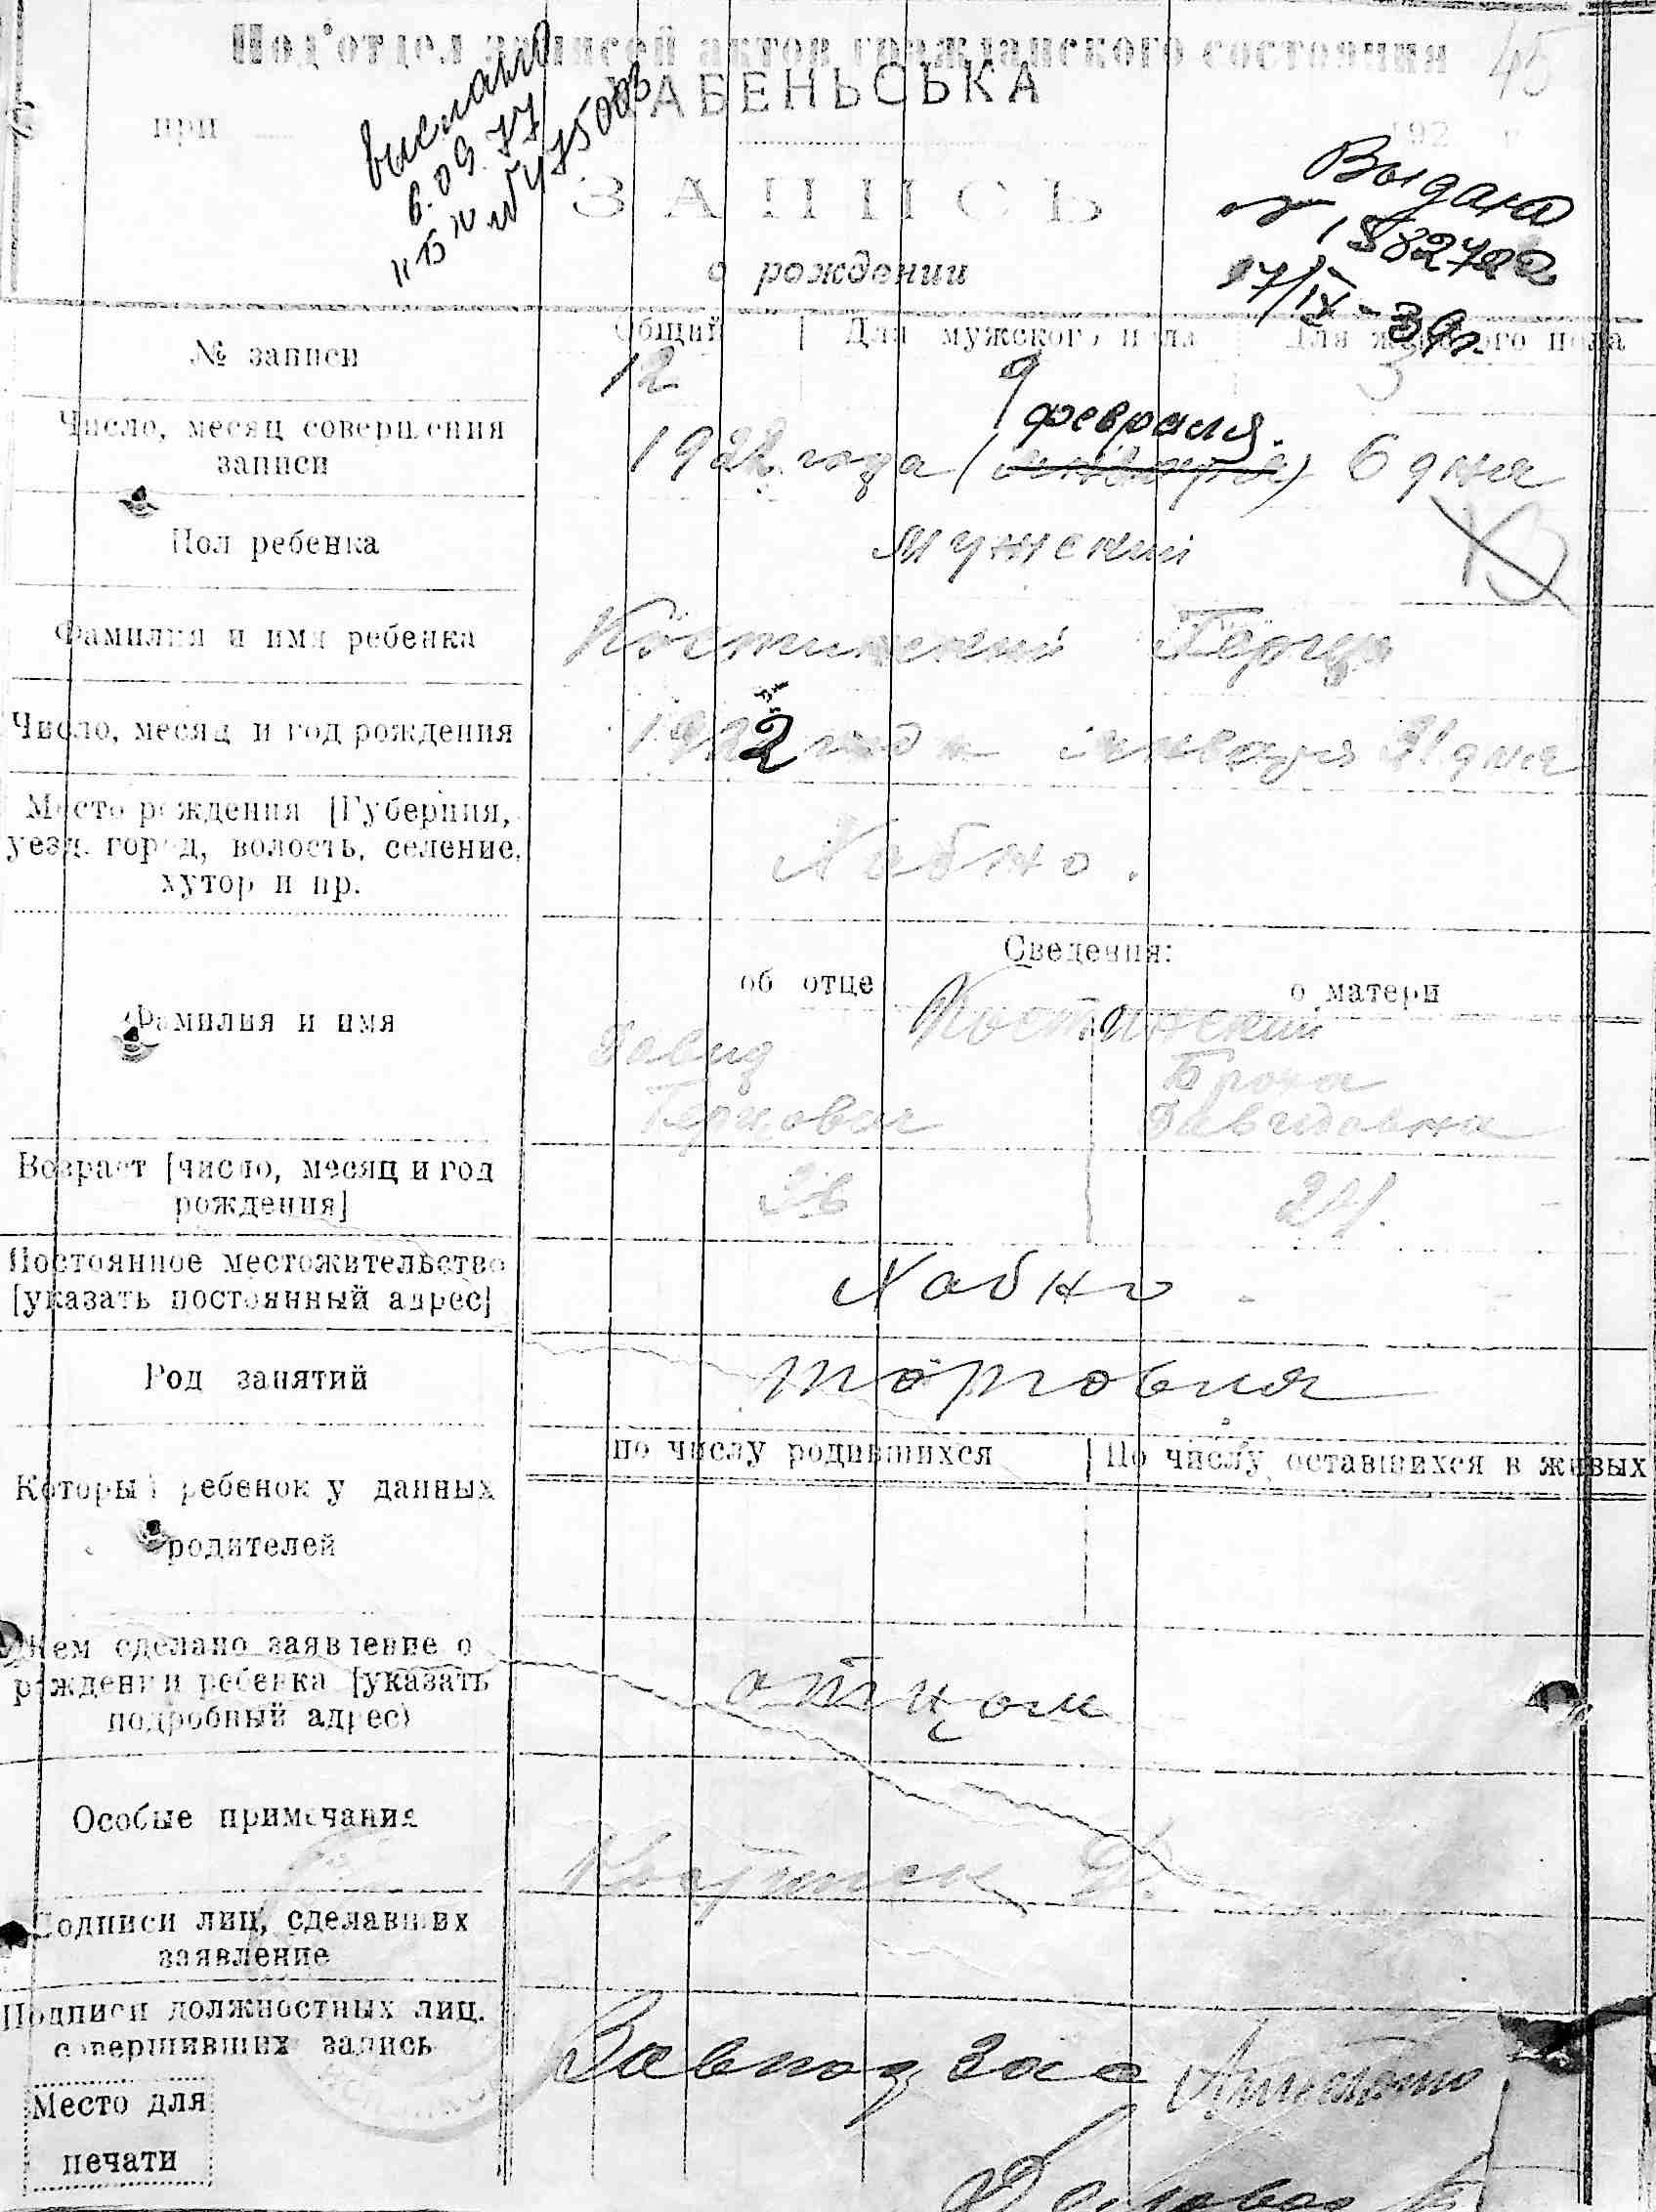 Под'отдел записей актов гражданского состояния
45
ХАБЕНЬСЬКА
при
192 г.
выслано
6.09.77
Выдана
ЗАПИСЬ
о рождении
17/IX-39г.
№ записи
Общий
Для мужского пола
Для женского пола
12
9
3
Число, месяц совершения
записи
февраля.
1922 года (января) 6 дня
Пол ребенка
мужский
Фамилия и имя ребенка
Костинский Герцъ
Число, месяц и год рождения
1922 года января 31 дня
Место рождения [Губерния,
уезд, город, волость, селение,
хутор и пр.
Хабно.
Сведения:
об отце
о матери
Фамилия и имя
Костинский
Давид
Герцович
Брона
Давидовна
Возраст [число, месяц и год
рождения]
Постоянное местожительство
[указать постоянный адрес]
Хабно
Род занятий
торговля
по числу родившихся
По числу оставшихся в живых
Который ребенок у данных
родителей
Кем сделано заявление о
рождении ребенка [указать
подробный адрес)
отцом
Особые примечания
Подписи лиц, сделавших
заявление
Подписи должностных лиц,
совершивших запись
Завподзаг
Место для
печати